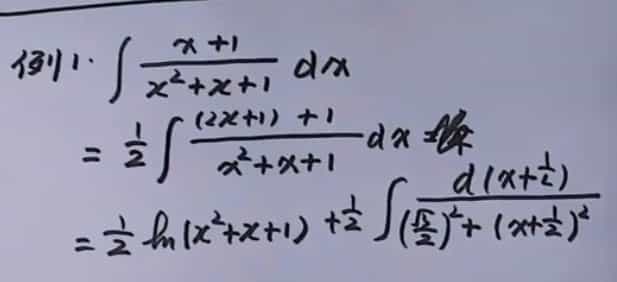 例1. ∫ (x+1)/(x²+x+1) dx
= 1/2 ∫ ((2x+1)+1)/(x²+x+1) dx
= 1/2 ln(x²+x+1) + 1/2 ∫ d(x+1/2)/((√3/2)²+(x+1/2)²)